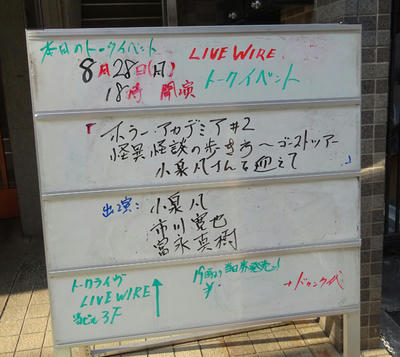 本日のトークイベント
LIVE WIRE
8月28日(月)
トークイベント
18時 開演
「ホラー・アカデミア#2
怪異怪談の歩き方〜ゴーストツアー
小泉凡さんを迎えて」
出演: 小泉凡
市川寛也
富永真樹
トークライヴ
LIVE WIRE
当ビル3F
当日券発売!
+ドリンク代